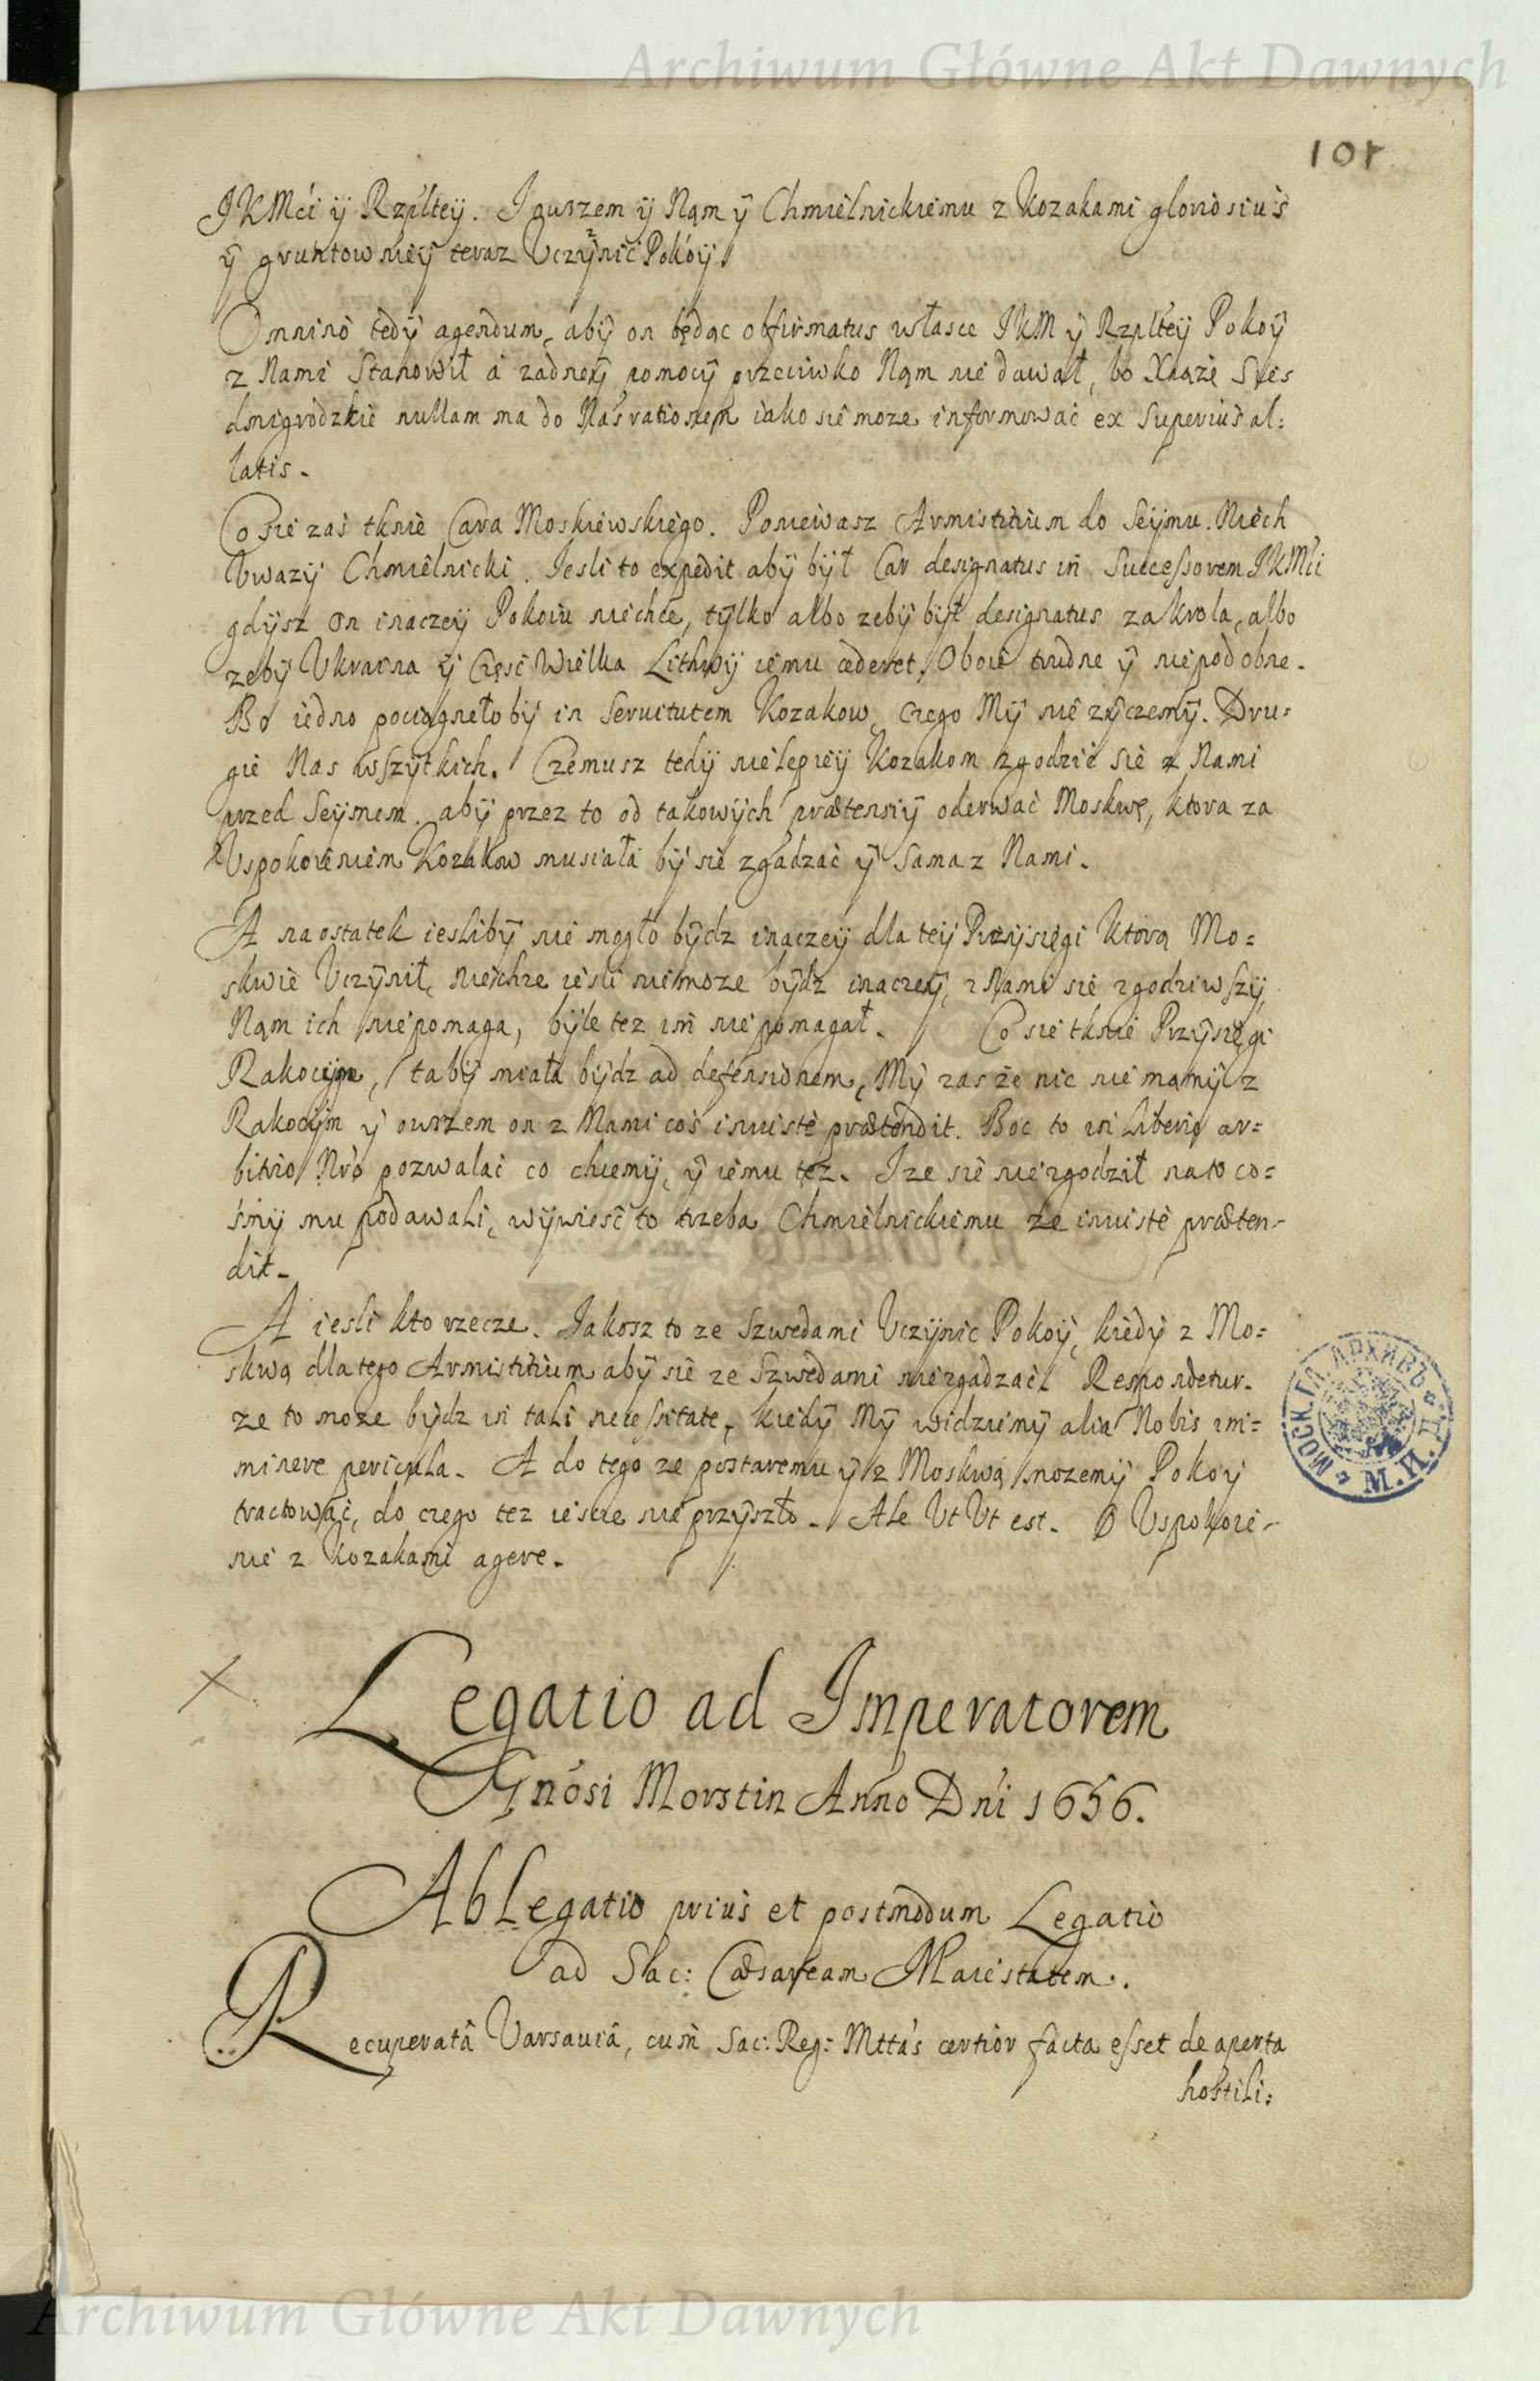 Archiwum Główne Akt Dawnych
101
JKMći ÿ Rzpltey. I owszem ÿ Nąm ÿ Chmielnickiemu z Kozakami gloriosius
ÿ gruntownieÿ teraz Uczÿnić Pokóÿ.
Omnino tedÿ agendum, abÿ on będąc obfirmatus w łasce JKM ÿ Rzpltey Pokoÿ
z Nami Stanowił á zadneÿ pomocÿ przeciwko Nąm nie dawał, bo Xiąże Sied
dmigrodzkie nullam ma do Nas rationem iako sie moze informować ex Superius al:
latis.
Co sie zaś tknie Cara Moskiewskiego. Poniewasz Armistitium do Seÿmu. Niech
Uwazÿ Chmielnicki. Iesli to expedit abÿ bÿł Car designatus in Successorem JKMći
gdÿsz on inaczeÿ Pokoiu niechce, tÿlko albo zebÿ bÿł designatus za krola, albo
zebÿ Ukraina ÿ Częsć Wielka Lithwÿ iemu cederet, Oboie trudne ÿ niepodobne.
Bo iedno pociągnełobÿ in Seruitutem Kozakow, czego Mÿ nie zÿczemÿ. Dru:
gie Nas wszÿtkich. Czemusz tedÿ nielepieÿ Kozakom zgodzić sie z Nami
przed Seÿmem. abÿ przez to od takowÿch prætensiÿ oderwać Moskwę, ktora za
Uspokoieniem Kozakow musiała bÿ sie zgadzać ÿ sama z Nami.
A na ostatek ieslibÿ nie mogło bÿdz inaczeÿ dla teÿ Przÿsięgi ktorą Mo=
skwie Uczÿnił, niechze iesli niemoze bÿdz inaczeÿ, z Nami sie zgodziwszÿ
Nąm ich niepomaga, bÿle tez im niepomagał. Co sie tknie Przÿsięgi
Rakocÿgo, ta bÿ miała bÿdz ad defensionem, Mÿ zas że nic nie mamÿ z
Rakocÿm ÿ owszem on z Nami coś iniuste prætendit. Boc to in Libero ar=
bitrio Nro pozwalać co chcemÿ, ÿ iemu tez. I ze sie niezgodził na to co=
smÿ mu podawali, wÿwiesć to trzeba Chmielnickiemu ze iniuste præten-
dit.
A iesli kto rzecze. Jakosz to ze Szwedami Uczÿnic Pokoÿ, kiedÿ z Mo=
skwą dla tego Armistitium abÿ sie ze Szwedami niezgadzać. Respondetur.
ze to moze bÿdz in tali necessitate, kiedÿ Mÿ widziemÿ alia Nobis im=
minere pericula. A do tego ze postaremu ÿ z Moskwą mozemÿ Pokoÿ
tractować, do czego tez iescze nie przÿszło. Ale Ut Ut est. O Uspokoie-
nie z Kozakami agere.
Legatio ad Imperatorem
Gnosi Morstin Anno Dni 1656.
AbLegatio prius et postmodum Legatio
ad Sac: Cæsaream Maiestatem.
Recuperatâ Varsauiâ, cum Sac: Reg: Mttas certior facta esset de aperta
hostili:
МОСК. ГЛ. АРХИВЪ
М. И. Д.
Archiwum Główne Akt Dawnych